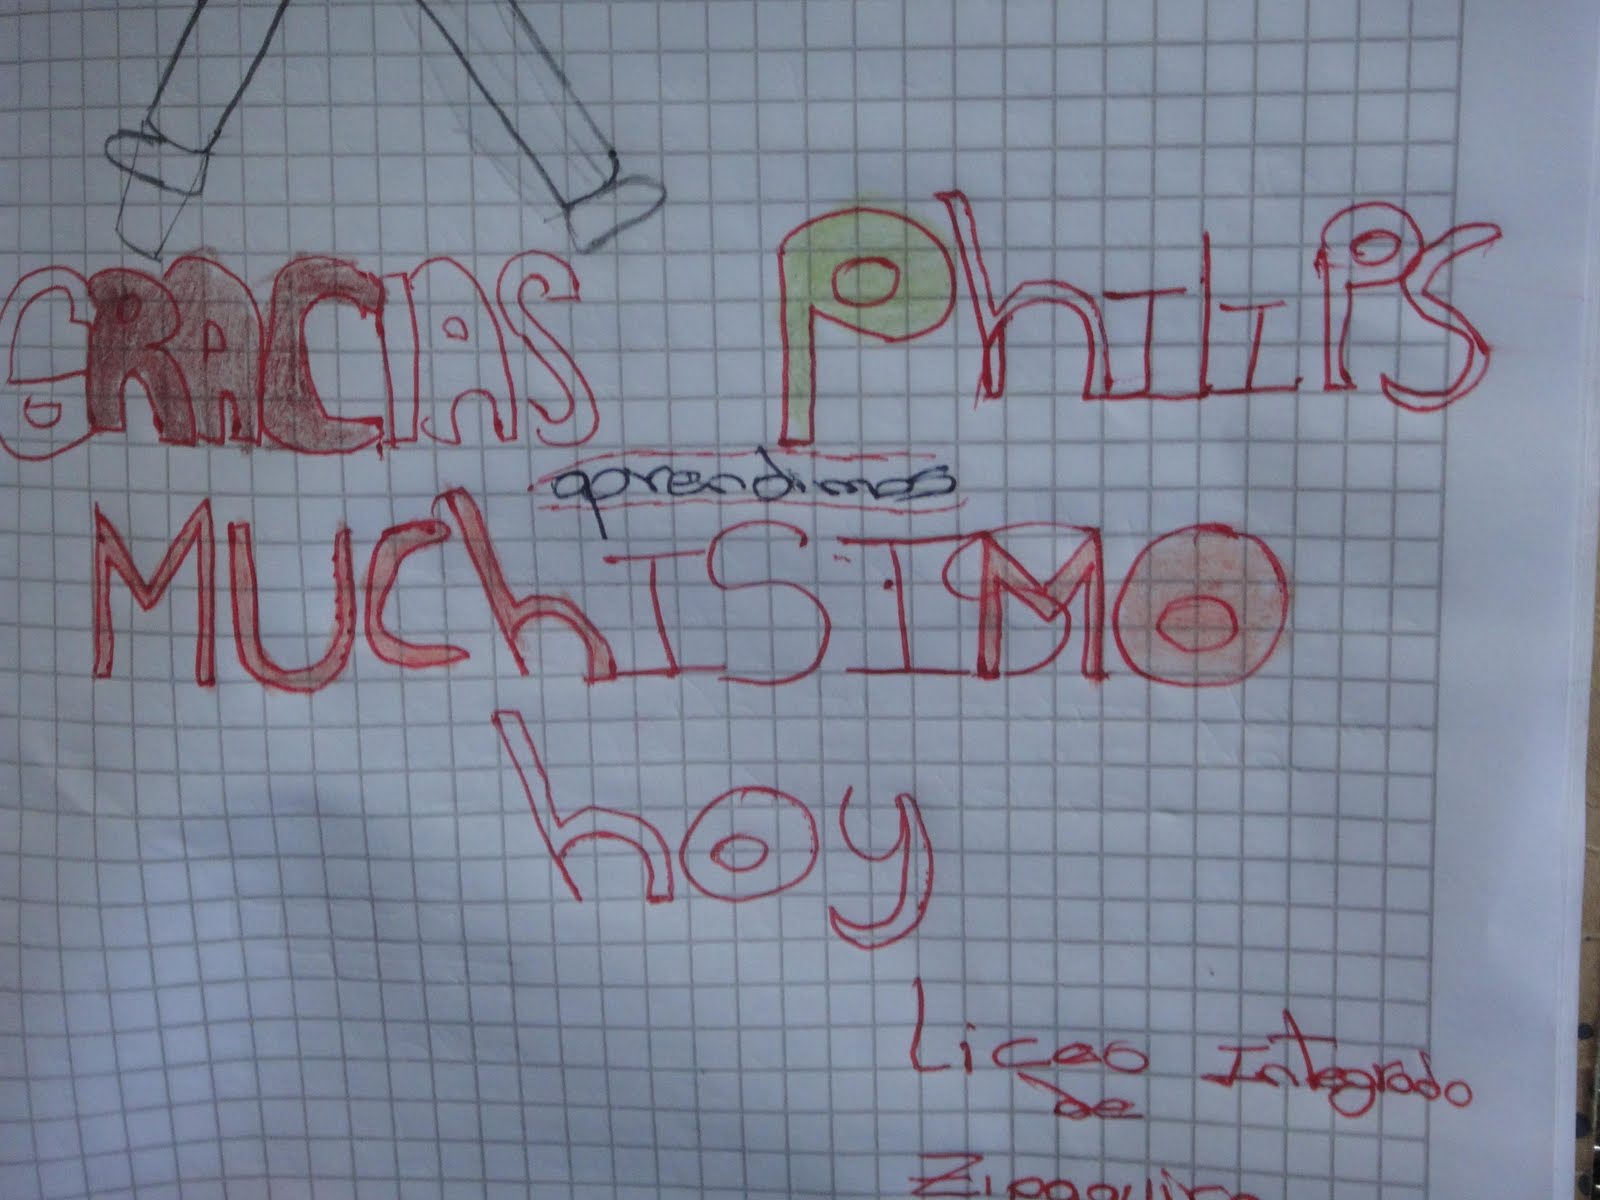 GRACIAS PhILIPS
aprendimos
MUChISIMO
hoy
Liceo Integrado
de
Zipaquira